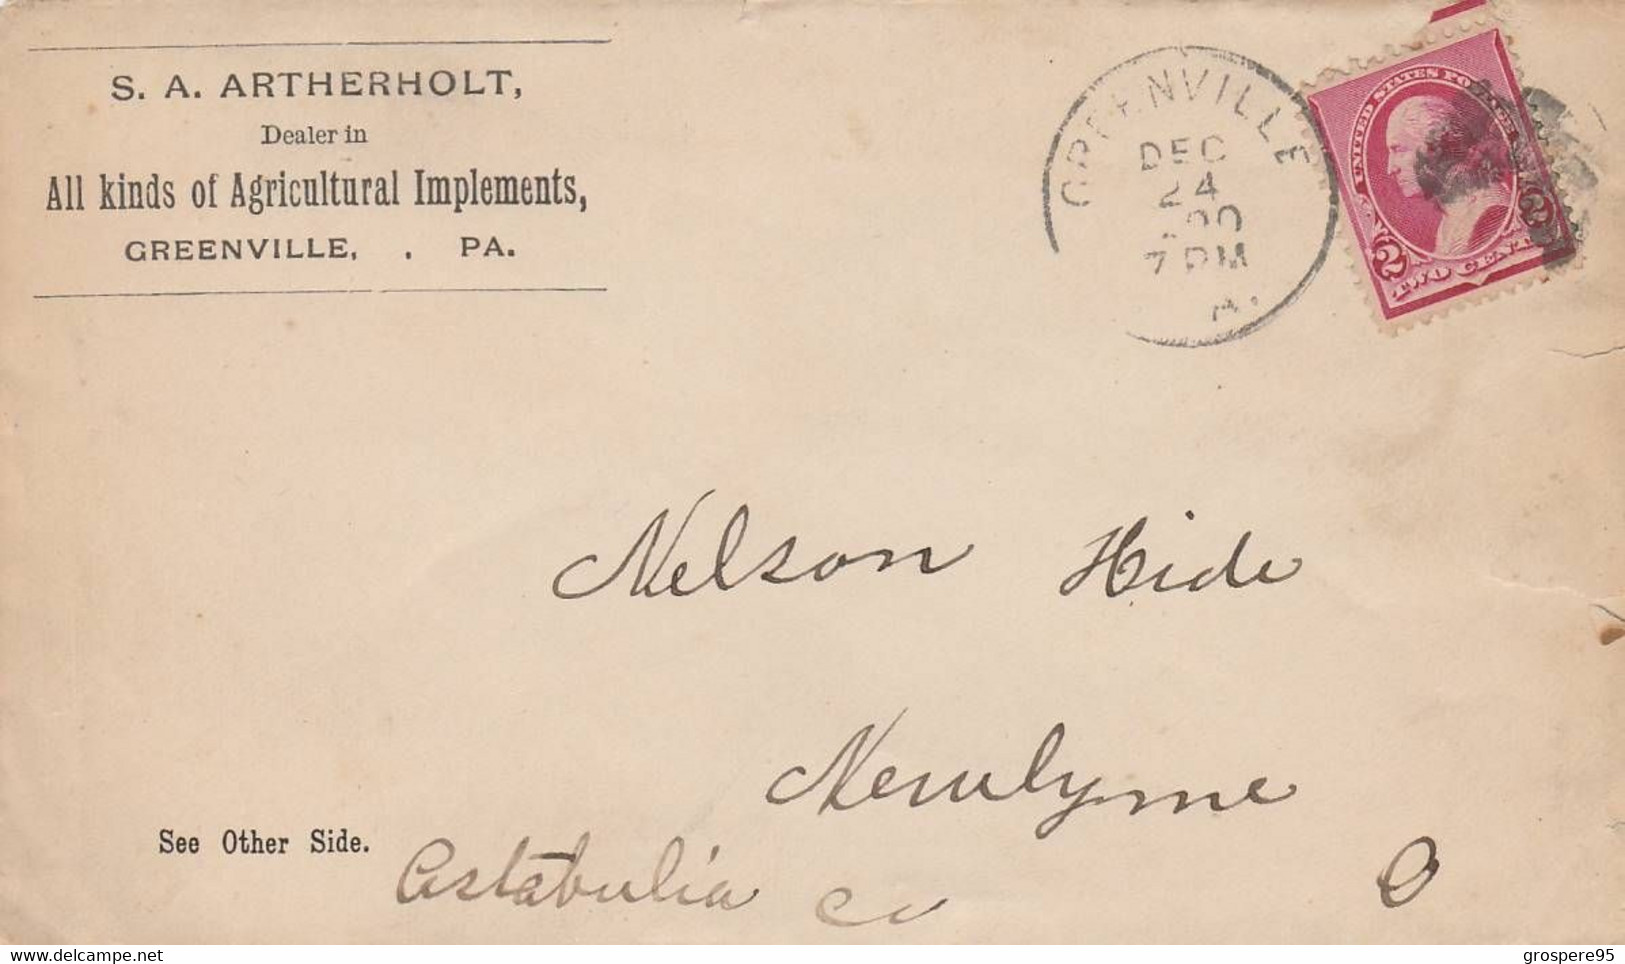 S. A. ARTHERHOLT,
Dealer in
All kinds of Agricultural Implements,
GREENVILLE, . PA.
GREENVILLE
DEC
24
7 PM
A.
UNITED STATES POSTAGE
2 2
TWO CENTS
Nelson Hide
Newlyme
See Other Side.
Astabulia Co O
www.delcampe.net
grospere95